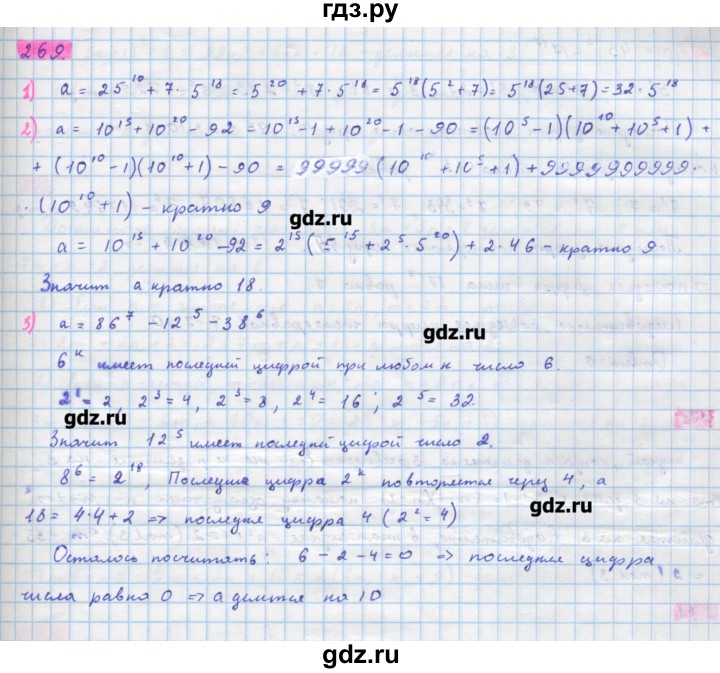 гдз.ру
269.
1) a = 25¹⁰ + 7 · 5¹⁸ = 5²⁰ + 7 · 5¹⁸ = 5¹⁸(5² + 7) = 5¹⁸(25+7) = 32 · 5¹⁸
2) a = 10¹⁵ + 10²⁰ - 92 = 10¹⁵ - 1 + 10²⁰ - 1 - 90 = (10⁵ - 1)(10¹⁰ + 10⁵ + 1) +
+ (10¹⁰ - 1)(10¹⁰ + 1) - 90 = 99999(10¹⁰ + 10⁵ + 1) + 9999999999 ·
· (10¹⁰ + 1) - кратно 9
gdz.ru
a = 10¹⁵ + 10²⁰ - 92 = 2¹⁵(5¹⁵ + 2⁵ · 5²⁰) + 2 · 46 - кратно 9
Значит a кратно 18.
3) a = 86⁷ - 12⁵ - 38⁶
gdz.ru
6ᵏ имеет последней цифрой при любом к число 6.
2¹ = 2, 2³ = 4, 2³ = 8, 2⁴ = 16; 2⁵ = 32.
gdz.ru
Значит 12⁵ имеет последней цифрой число 2.
8⁶ = 2¹⁸, Последняя цифра 2ᵏ повторяется через 4, а
18 = 4·4+2 => последняя цифра 4 (2² = 4)
gdz.ru
Осталось посчитать: 6 - 2 - 4 = 0 => последняя цифра
числа равна 0 => a делится на 10
gdz.ru
gdz.ru